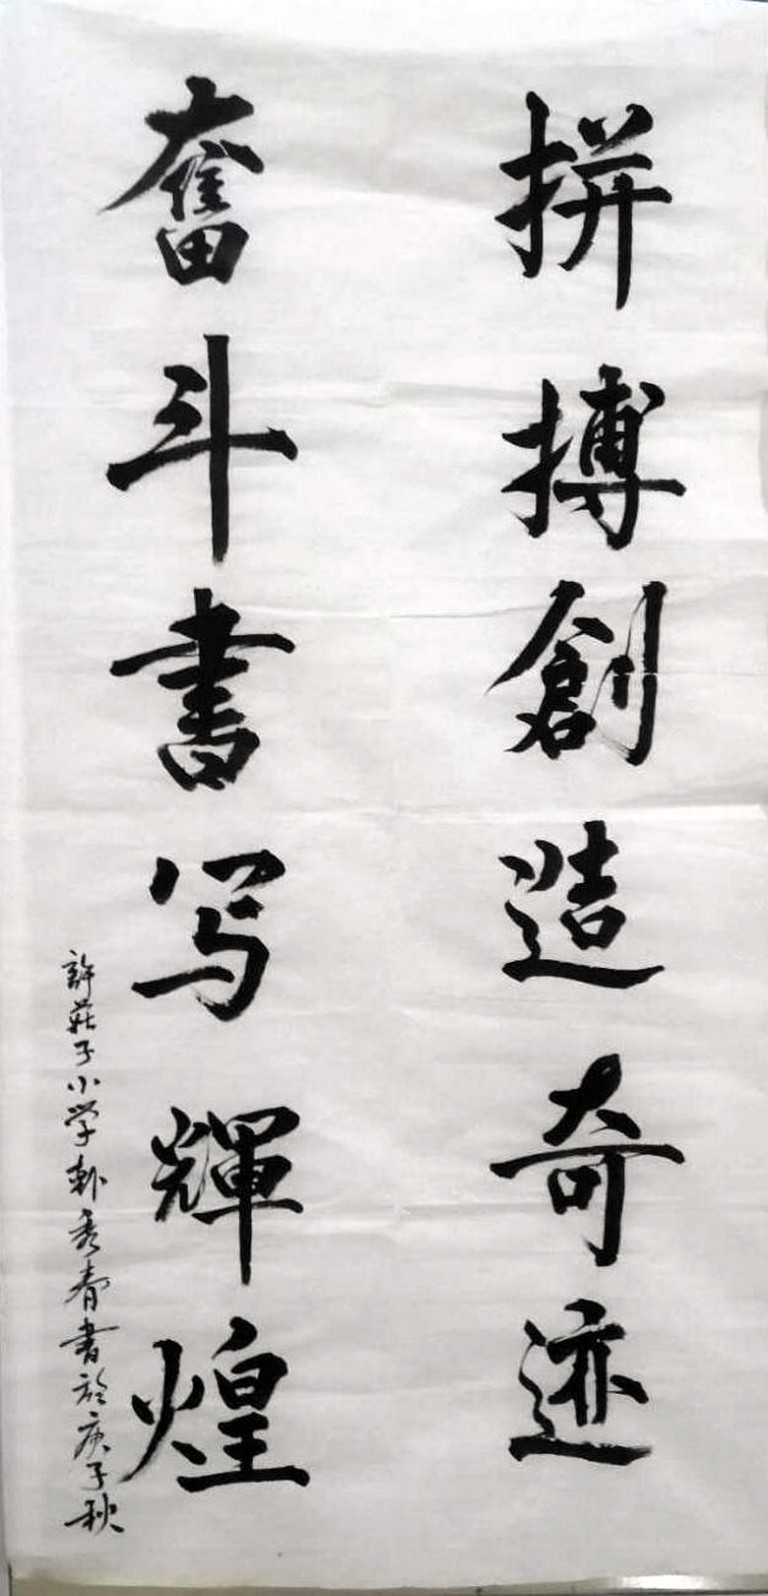 拼搏創造奇迹
奮斗書写輝煌
許莊子小学郭秀春書於庚子秋